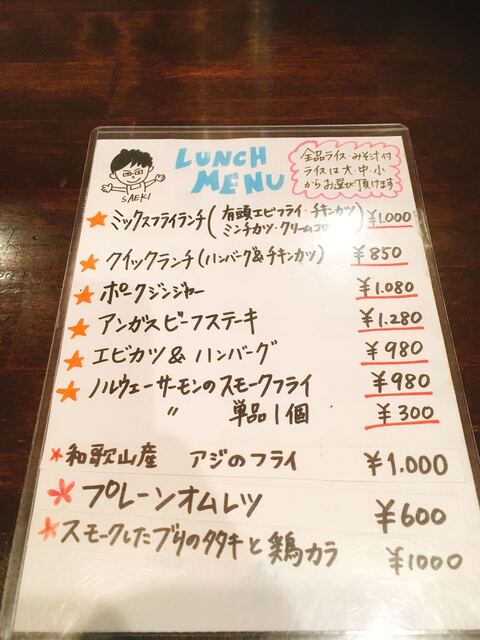 LUNCH
MENU
SAEKI
全品ライス・みそ汁付
ライスは大・中・小
からお選び頂けます
ミックスフライランチ(有頭エビフライ・チキンカツ ¥1.000
ミンチカツ・クリームコロ)
クイックランチ(ハンバーグ&チキンカツ) ¥850
ポークジンジャー ¥1.080
アンガスビーフステーキ ¥1.280
エビカツ&ハンバーグ ¥980
ノルウェーサーモンのスモークフライ ¥980
〃 単品1個 ¥300
和歌山産 アジのフライ ¥1.000
プレーンオムレツ ¥600
スモークしたブリのタタキと鶏カラ ¥1000